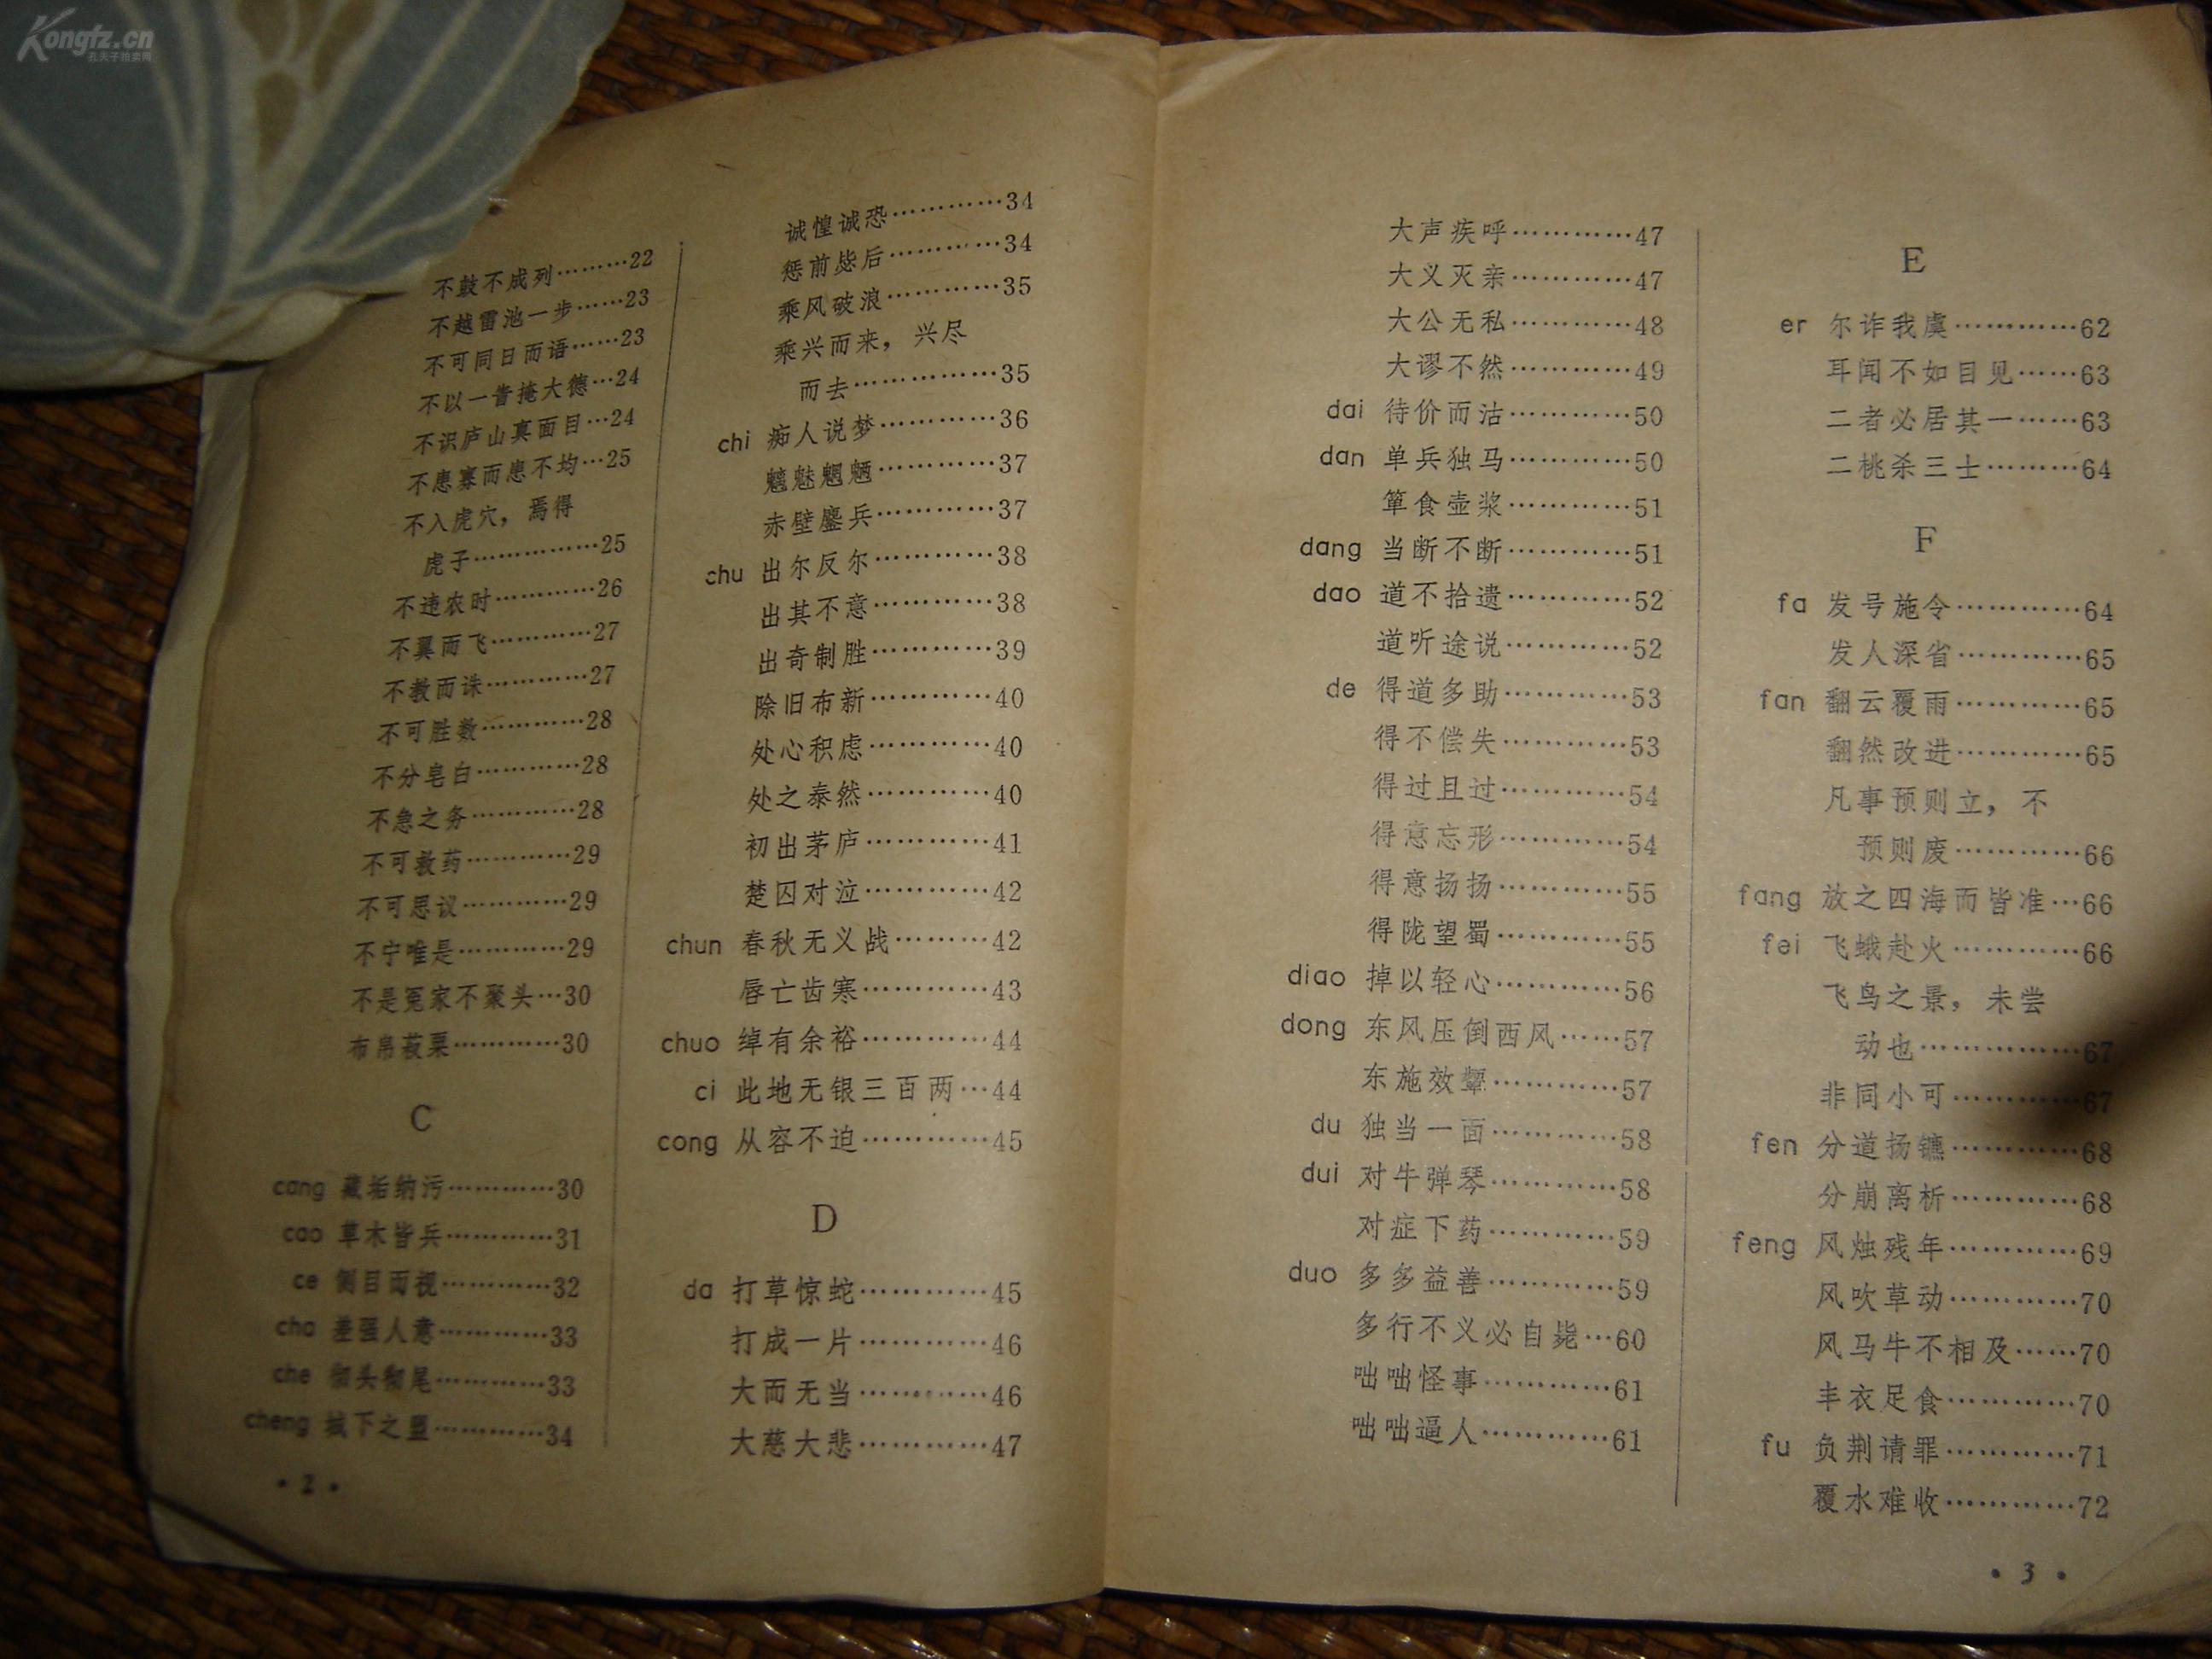 Kongfz.cn
孔夫子拍卖网
不鼓不成列………22
不越雷池一步……23
不可同日而语……23
不以一眚掩大德…24
不识庐山真面目…24
不患寡而患不均…25
不入虎穴，焉得
虎子……………25
不违农时…………26
不翼而飞…………27
不教而诛…………27
不可胜数…………28
不分皂白…………28
不急之务…………28
不可救药…………29
不可思议…………29
不宁唯是…………29
不是冤家不聚头…30
布帛菽粟…………30
C
cang 藏垢纳污…………30
cao 草木皆兵…………31
ce 侧目而视…………32
cha 差强人意…………33
che 彻头彻尾…………33
cheng 城下之盟…………34
·2·
诚惶诚恐…………34
惩前毖后…………34
乘风破浪…………35
乘兴而来，兴尽
而去……………35
chi 痴人说梦…………36
魑魅魍魉…………37
赤壁鏖兵…………37
chu 出尔反尔…………38
出其不意…………38
出奇制胜…………39
除旧布新…………40
处心积虑…………40
处之泰然…………40
初出茅庐…………41
楚囚对泣…………42
chun 春秋无义战………42
唇亡齿寒…………43
chuo 绰有余裕…………44
ci 此地无银三百两…44
cong 从容不迫…………45
D
da 打草惊蛇…………45
打成一片…………46
大而无当…………46
大慈大悲…………47
大声疾呼…………47
大义灭亲…………47
大公无私…………48
大谬不然…………49
dai 待价而沽…………50
dan 单兵独马…………50
箪食壶浆…………51
dang 当断不断…………51
dao 道不拾遗…………52
道听途说…………52
de 得道多助…………53
得不偿失…………53
得过且过…………54
得意忘形…………54
得意扬扬…………55
得陇望蜀…………55
diao 掉以轻心…………56
dong 东风压倒西风……57
东施效颦…………57
du 独当一面…………58
dui 对牛弹琴…………58
对症下药…………59
duo 多多益善…………59
多行不义必自毙…60
咄咄怪事…………61
咄咄逼人…………61
E
er 尔诈我虞…………62
耳闻不如目见……63
二者必居其一……63
二桃杀三士………64
F
fa 发号施令…………64
发人深省…………65
fan 翻云覆雨…………65
翻然改进…………65
凡事预则立，不
预则废…………66
fang 放之四海而皆准…66
fei 飞蛾赴火…………66
飞鸟之景，未尝
动也……………67
非同小可…………67
fen 分道扬镳…………68
分崩离析…………68
feng 风烛残年…………69
风吹草动…………70
风马牛不相及……70
丰衣足食…………70
fu 负荆请罪…………71
覆水难收…………72
·3·